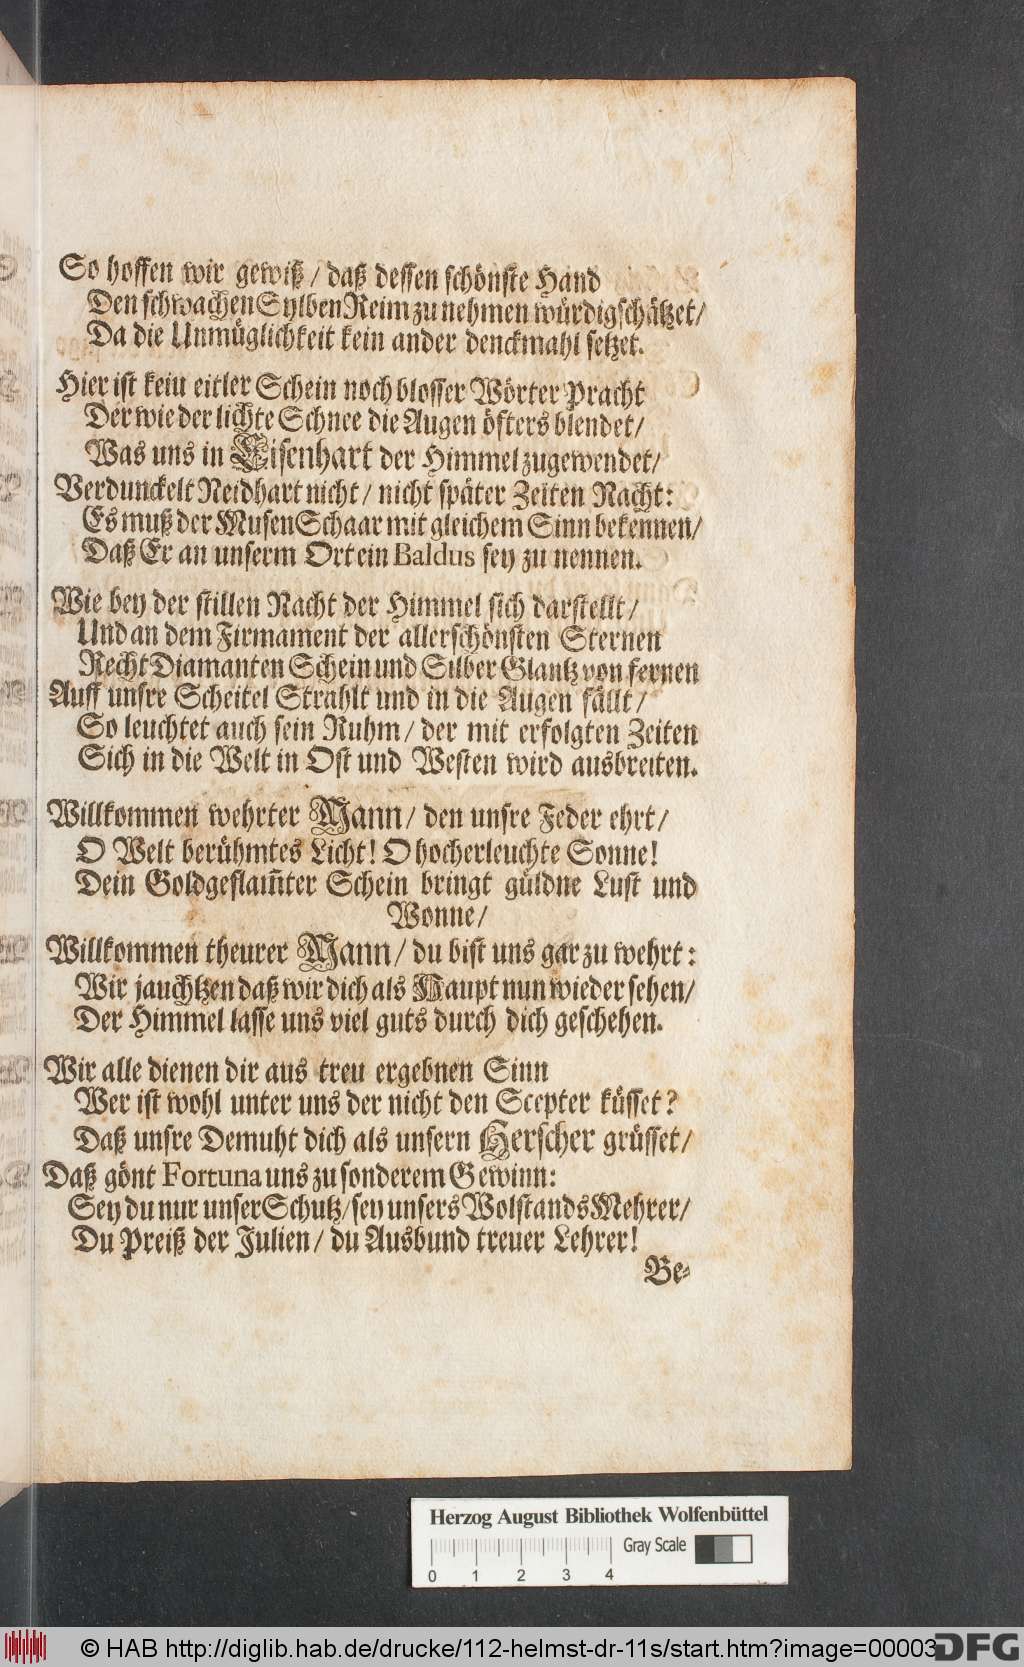 So hoffen wir gewiß / daß dessen schönste Hand
Den schwachen Sylben Reim zu nehmen würdig schätzet /
Da die Unmüglichkeit kein ander denckmahl setzet.
Hier ist keiu eitler Schein noch blosser Wörter Pracht
Der wie der lichte Schnee die Augen öfters blendet /
Was uns in Eisenhart der Himmel zugewendet /
Verdunckelt Neidhart nicht / nicht später Zeiten Nacht:
Es muß der Musen Schaar mit gleichem Sinn bekennen /
Daß Er an unserm Ort ein Baldus sey zu nennen.
Wie bey der stillen Nacht der Himmel sich darstellt /
Und an dem Firmament der allerschönsten Sternen
Recht Diamanten Schein und Silber Glantz von fernen
Auff unsre Scheitel Strahlt und in die Augen fällt /
So leuchtet auch sein Ruhm / der mit erfolgten Zeiten
Sich in die Welt in Ost und Westen wird ausbreiten.
Willkommen wehrter Mann / den unsre Feder ehrt /
O Welt berühmtes Licht! O hocherleuchte Sonne!
Dein Goldgeflam̃ter Schein bringt güldne Lust und
Wonne /
Willkommen theurer Mann / du bist uns gar zu wehrt:
Wir jauchtzen daß wir dich als Haupt nun wieder sehen /
Der Himmel lasse uns viel guts durch dich geschehen.
Wir alle dienen dir aus treu ergebnen Sinn
Wer ist wohl unter uns der nicht den Scepter küsset?
Daß unsre Demuht dich als unsern Herscher grüsset /
Daß gönt Fortuna uns zu sonderem Gewinn:
Sey du nur unser Schutz / sey unsers Wolstands Mehrer /
Du Preiß der Julien / du Ausbund treuer Lehrer!
Be-
Herzog August Bibliothek Wolfenbüttel
Gray Scale
0 1 2 3 4
© HAB http://diglib.hab.de/drucke/112-helmst-dr-11s/start.htm?image=00003
DFG